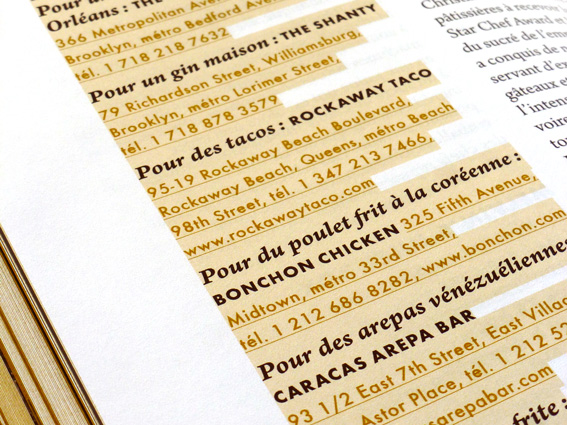 Pour un
Orléans : THE
366 Metropolitan Avenue
Brooklyn, métro Bedford Avenue
tél. 1 718 218 7632
Pour un gin maison : THE SHANTY
79 Richardson Street, Williamsburg,
Brooklyn, métro Lorimer Street,
tél. 1 718 878 3579
Pour des tacos : ROCKAWAY TACO
95-19 Rockaway Beach Boulevard,
Rockaway Beach, Queens, métro Beach
98th Street, tél. 1 347 213 7466,
www.rockawaytaco.com
Pour du poulet frit à la coréenne :
BONCHON CHICKEN 325 Fifth Avenue,
Midtown, métro 33rd Street,
tél. 1 212 686 8282, www.bonchon.com
Pour des arepas vénézuéliennes
CARACAS AREPA BAR
93 1/2 East 7th Street, East Villa
Astor Place, tél. 1 212 52
arepabar.com
frite :
pâtissières à recevoir
Star Chef Award e
du sucré de l'em
a conquis de n
servant d'ex
gâteaux e
l'intens
voire
to